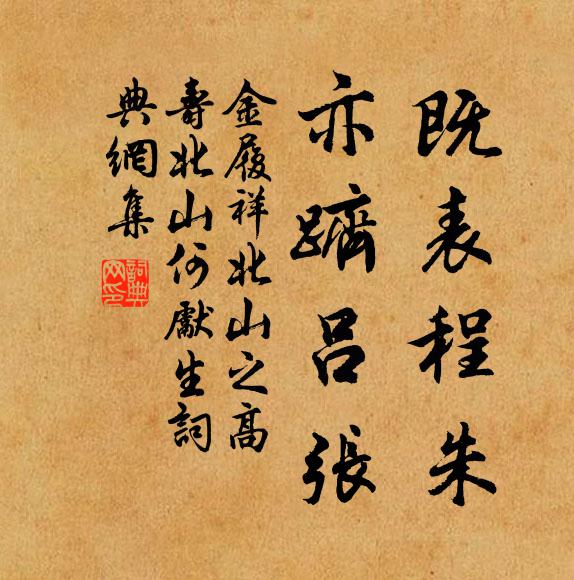 既表程朱
亦躋呂張
金履祥北山之高
壽北山何獻生詞
典網集
詞典網印